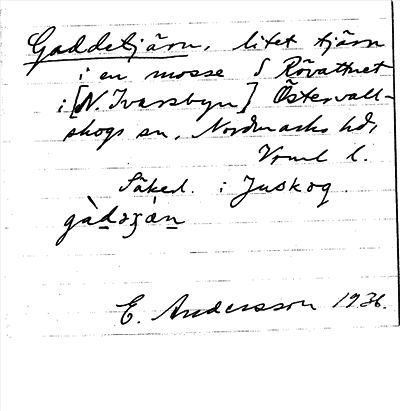 Gaddetjärn, litet tjärn
i en mosse S Rövattnet
i [N. Ivarsbyn] Östervall-
skogs sn, Nordmarks hd,
Vrml l.
Säked. i Juskog.
gàdəʒán
E. Andersson 1936.